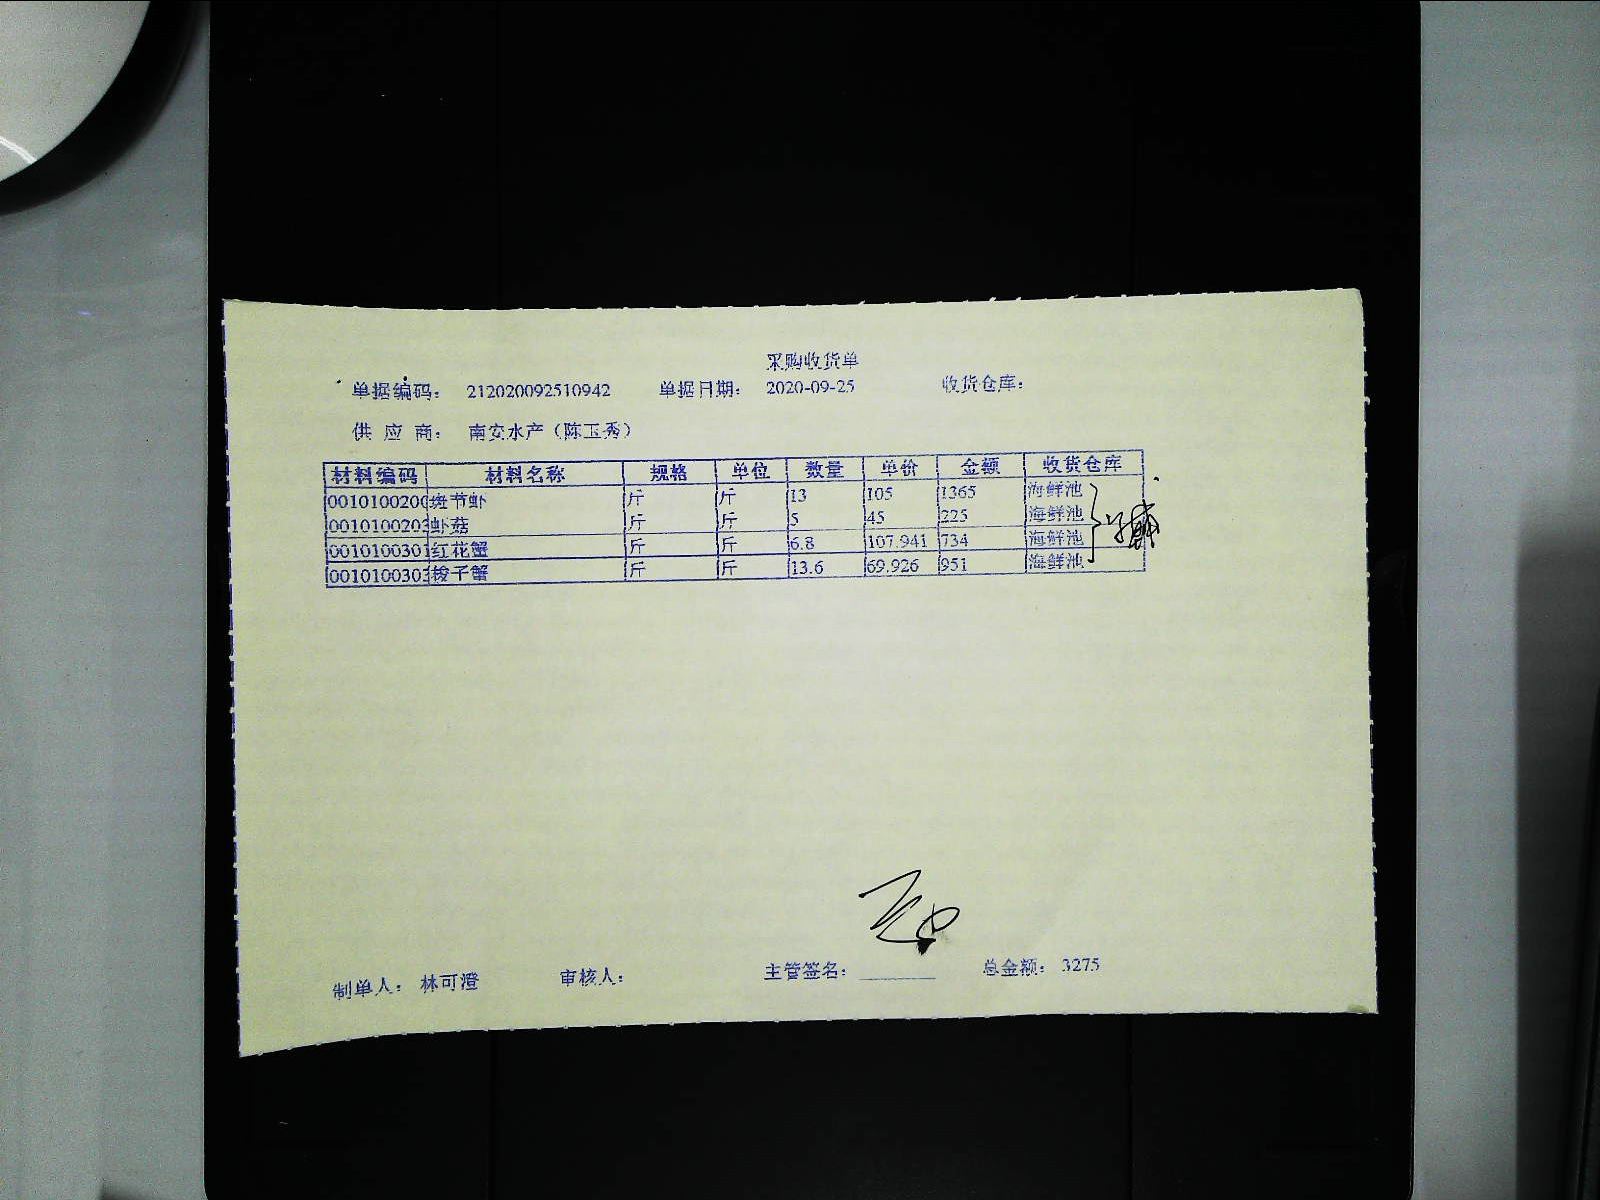 采购收货单
单据编码： 212020092510942 单据日期： 2020-09-25 收货仓库：
供 应 商： 南安水产（陈玉秀）
材料编码 材料名称 规格 单位 数量 单价 金额 收货仓库
0010100200 斑节虾 斤 斤 13 105 1365 海鲜池
0010100203 虾菇 斤 斤 5 45 225 海鲜池
0010100301 红花蟹 斤 斤 6.8 107.941 734 海鲜池
0010100303 梭子蟹 斤 斤 13.6 69.926 951 海鲜池
制单人： 林可澄 审核人： 主管签名： 总金额： 3275